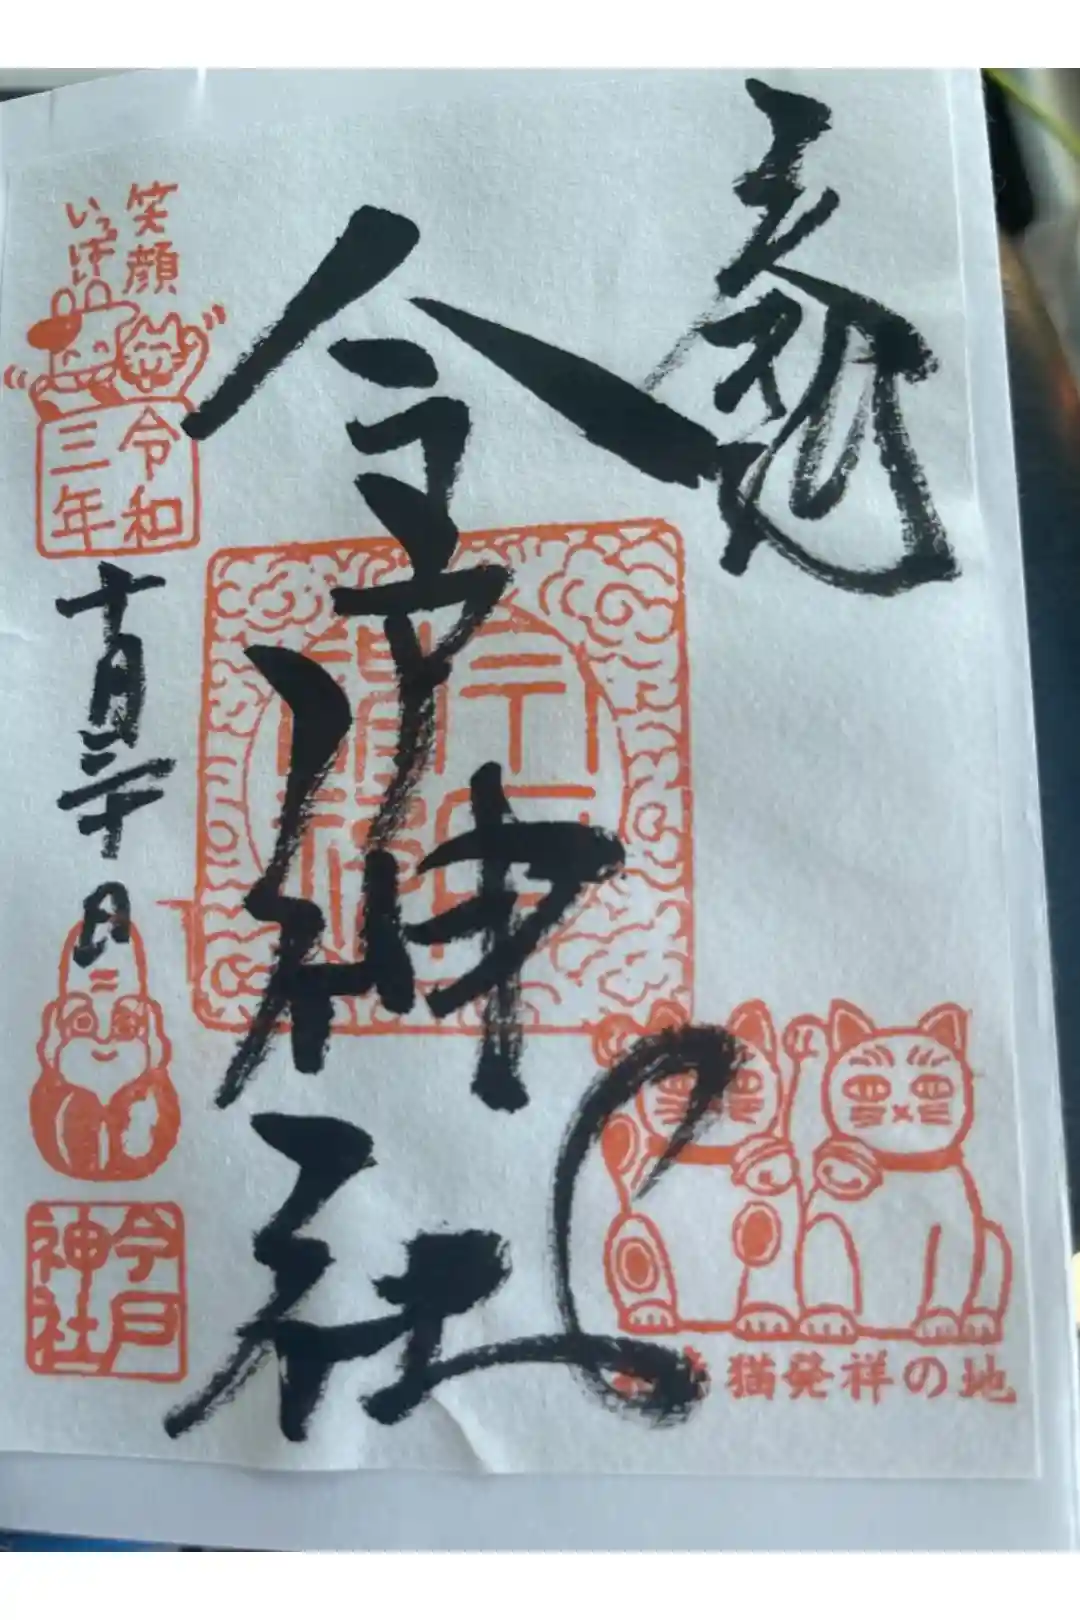 今戸神社
笑顔
いっぱい
令和
三年
十月三十日
今戸
神社
猫発祥の地